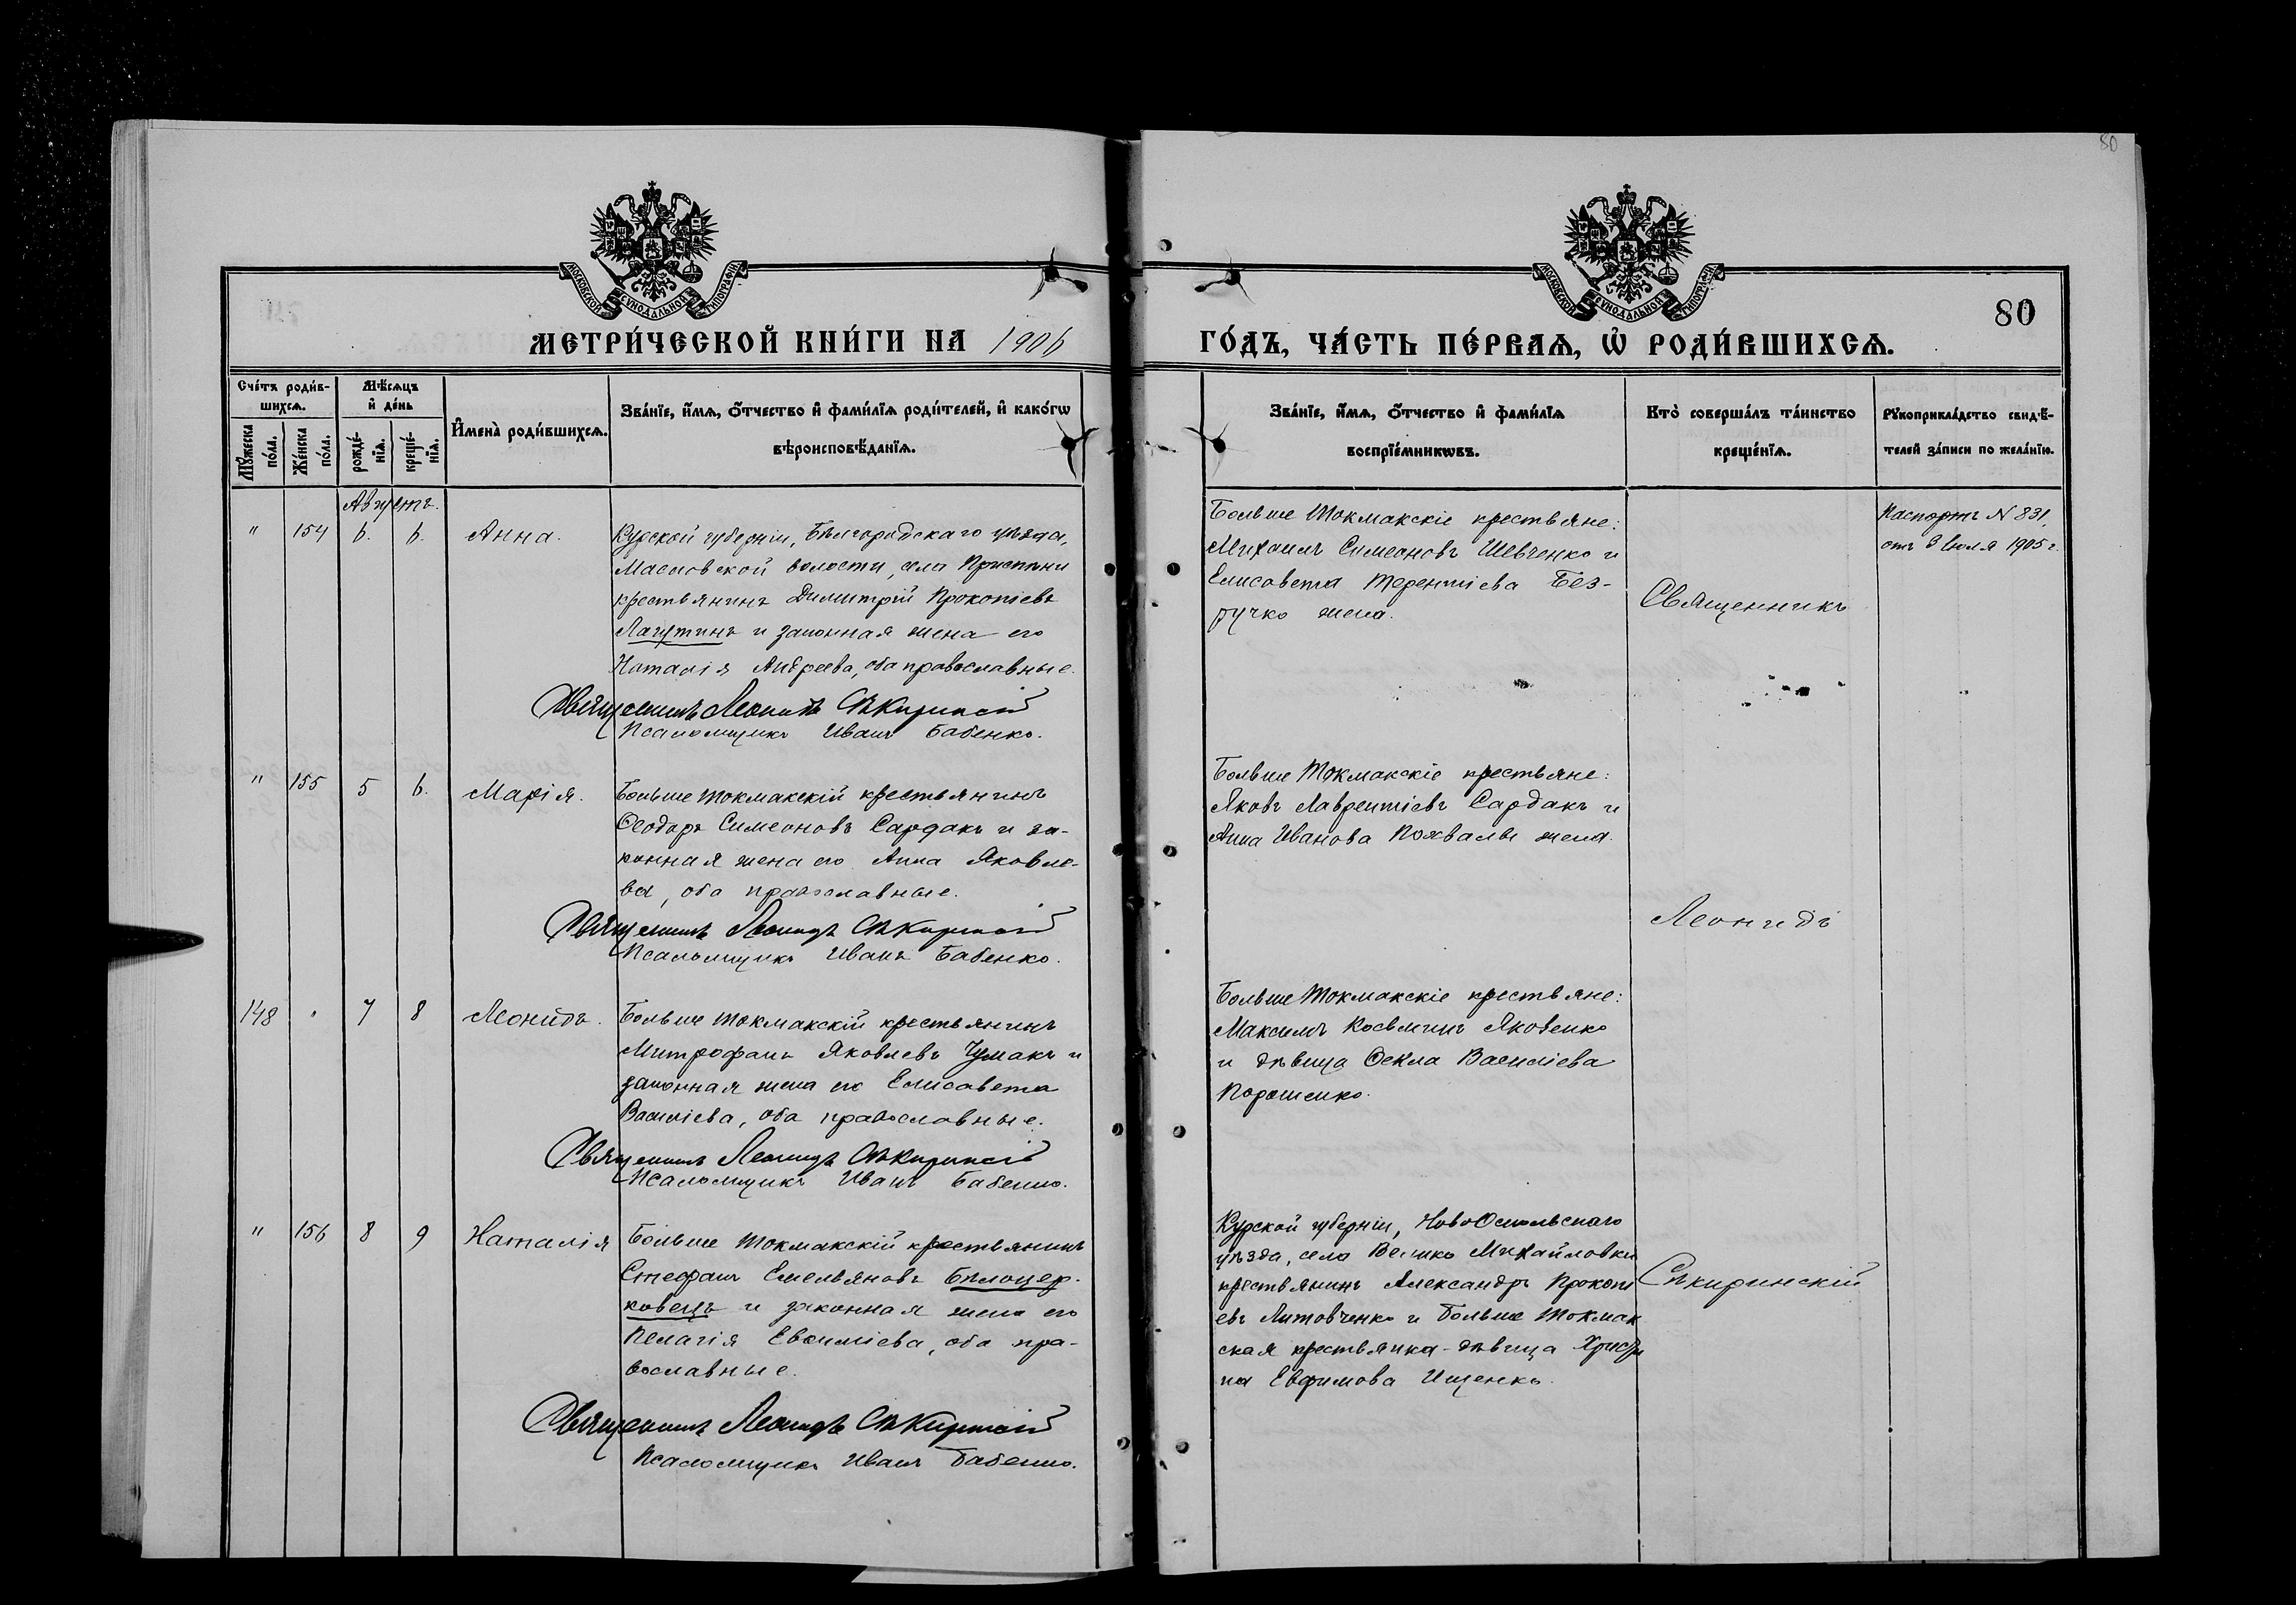 80
МОСКОВСКОЙ СѴНОДАЛЬНОЙ ТИПОГРАФІИ
МОСКОВСКОЙ СѴНОДАЛЬНОЙ ТИПОГРАФІИ
80
МЕТРИ́ЧЕСКОЙ КНИ́ГИ НА 1906
ГО́ДЪ, ЧА́СТЬ ПЕ́РВАѦ, Ѡ҆ РОДИ́ВШИХСѦ.
Сче́тъ роди́в-
шихсѧ.
Мѣ́сѧцъ
и҆ де́нь
Мꙋ́жеска
по́ла.
Же́нска
по́ла.
рожде́-
нїѧ.
креще́-
нїѧ.
И҆мена̀ роди́вшихсѧ.
Зва́нїе, и҆́мѧ, ѻ҆́тчество и҆ фами́лїѧ роди́телей, и҆ како́гѡ
вѣроисповѣ́данїѧ.
Зва́нїе, и҆́мѧ, ѻ҆́тчество и҆ фами́лїѧ
воспрїе́мникѡвъ.
Кто̀ соверша́лъ та́инство
креще́нїѧ.
Рꙋкоприкла́дство свидѣ́-
телей за́писи по жела́нїю.
Августъ.
" 154 6. 6. Анна.
Курской губерніи, Бѣлгородскаго уѣзда,
Масловской волости, села Пристѣни
крестьянинъ Димитрій Прокопіевъ
Лагутинъ и законная жена его
Наталія Андреева, оба православные.
Священникъ Леонидъ Сѣкиринскій
Псаломщикъ Иванъ Бабенко.
Больше Токмакскіе крестьяне:
Михаилъ Симеоновъ Шевченко и
Елисавета Терентіева Без-
ручко жена.
Священникъ
Паспортъ N 831,
отъ 8 Іюля 1905 г.
" 155 5 6. Марія.
Больше Токмакскій крестьянинъ
Ѳеодоръ Симеоновъ Сардакъ и за-
конная жена его Анна Яковле-
ва, оба православные.
Священникъ Леонидъ Сѣкиринскій
Псаломщикъ Иванъ Бабенко.
Больше Токмакскіе крестьяне:
Яковъ Лаврентіевъ Сардакъ и
Анна Иванова Похвалы жена.
Леонидъ
148 " 7 8 Леонидъ.
Больше Токмакскій крестьянинъ
Митрофанъ Яковлевъ Чумакъ и
законная жена его Елисавета
Василіева, оба православные.
Священникъ Леонидъ Сѣкиринскій
Псаломщикъ Иванъ Бабенко.
Больше Токмакскіе крестьяне:
Максимъ Косьминъ Яковенко
и дѣвица Ѳекла Василіева
Порошенко.
" 156 8 9 Наталія
Больше Токмакскій крестьянинъ
Стефанъ Емельяновъ Бѣлоцер-
ковецъ и законная жена его
Пелагія Евѳиміева, оба пра-
вославные.
Священникъ Леонидъ Сѣкиринскій
Псаломщикъ Иванъ Бабенко.
Курской губерніи, НовоОскольскаго
уѣзда, села Велико Михайловки
крестьянинъ Александръ Прокопі
евъ Литовченко и Больше Токмак
ская крестьянка-дѣвица Христи
на Евфимова Ищенко.
Сѣкиринскій